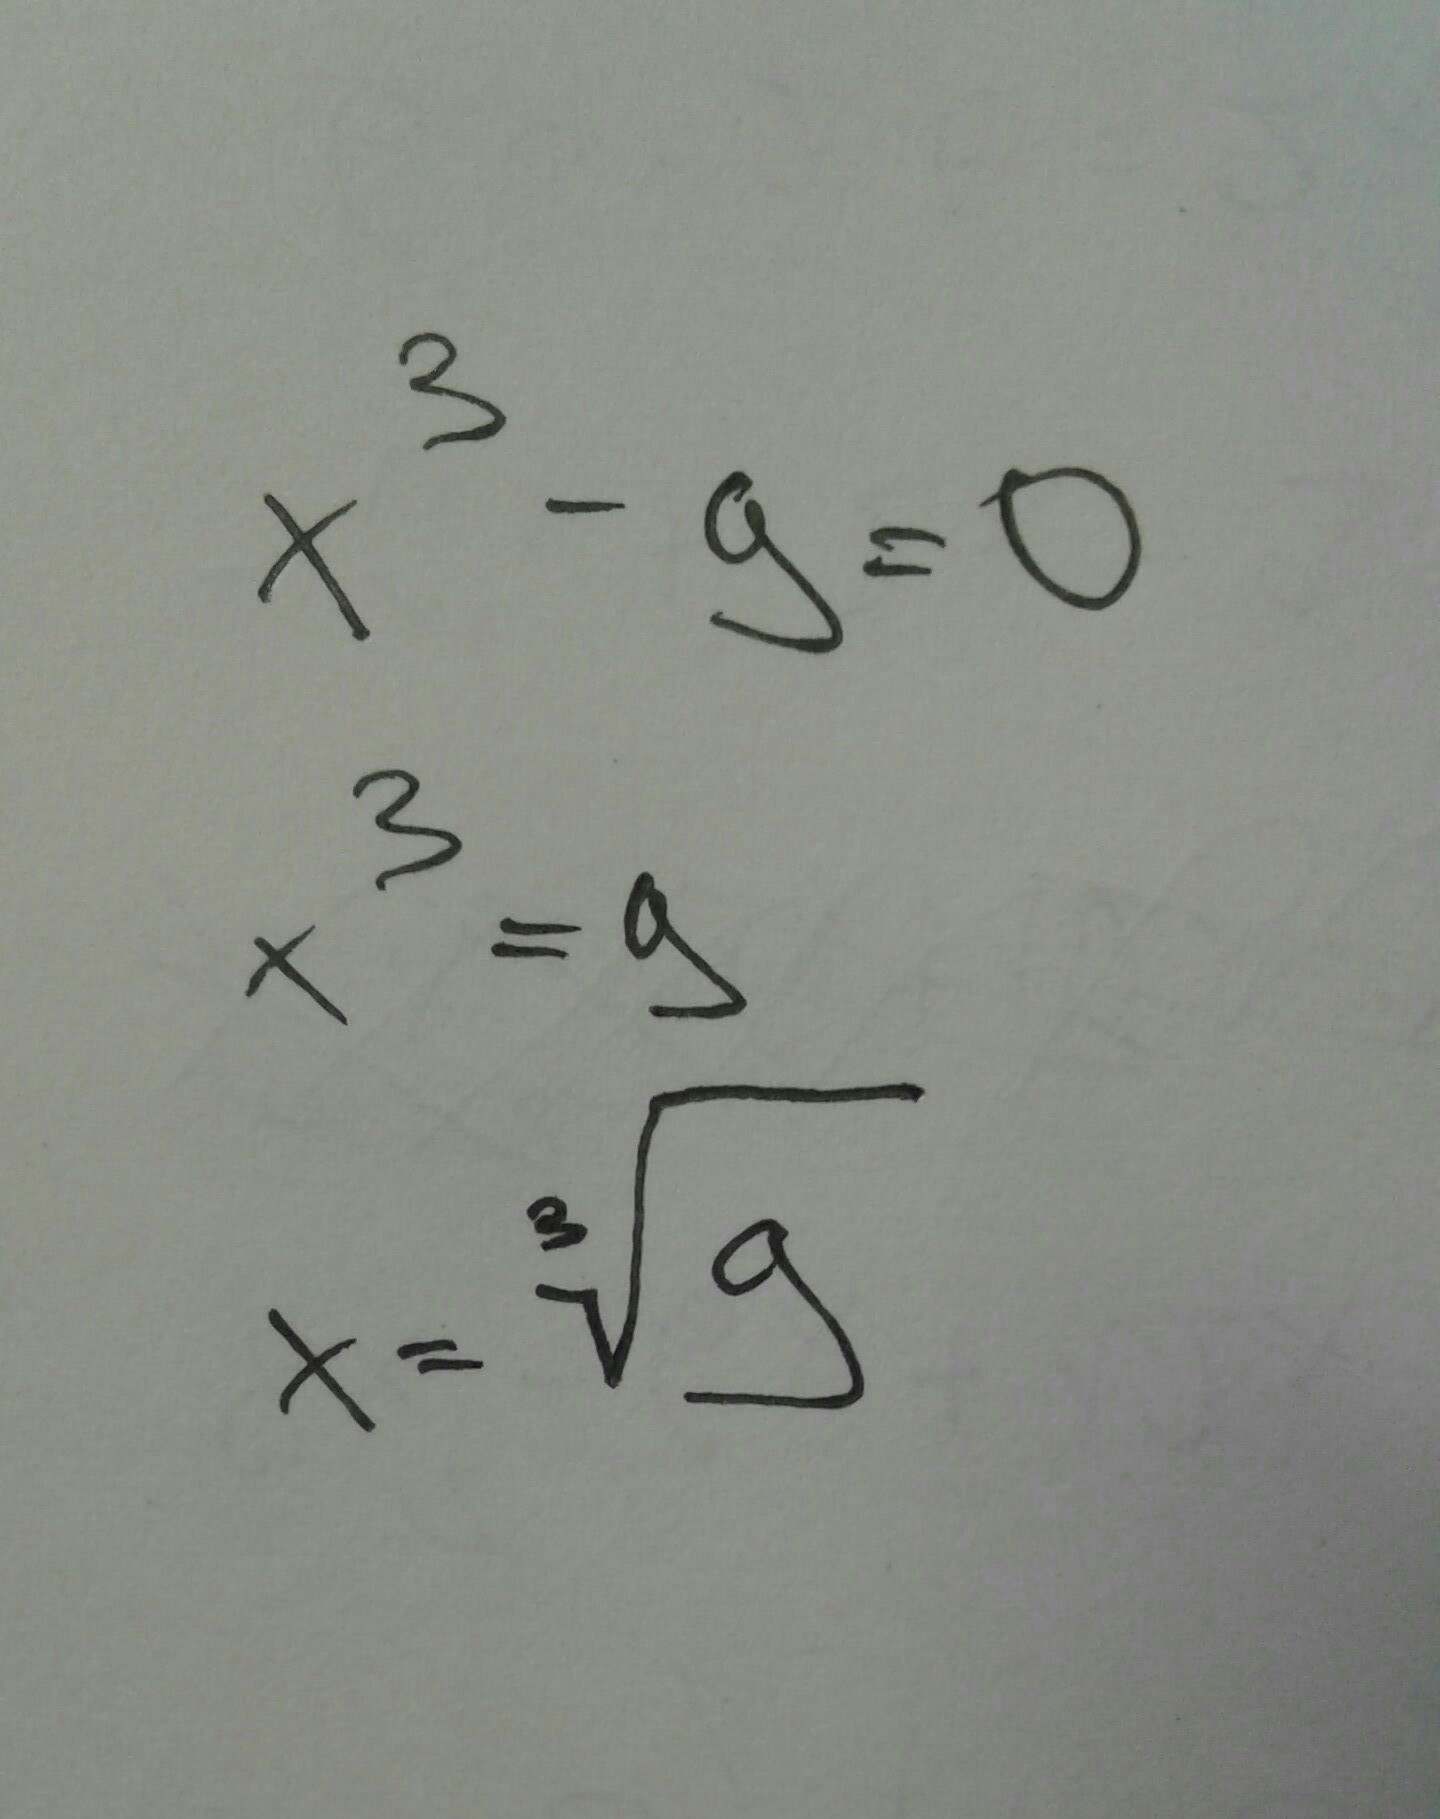 x³ - 9 = 0
x³ = 9
x = ³√9